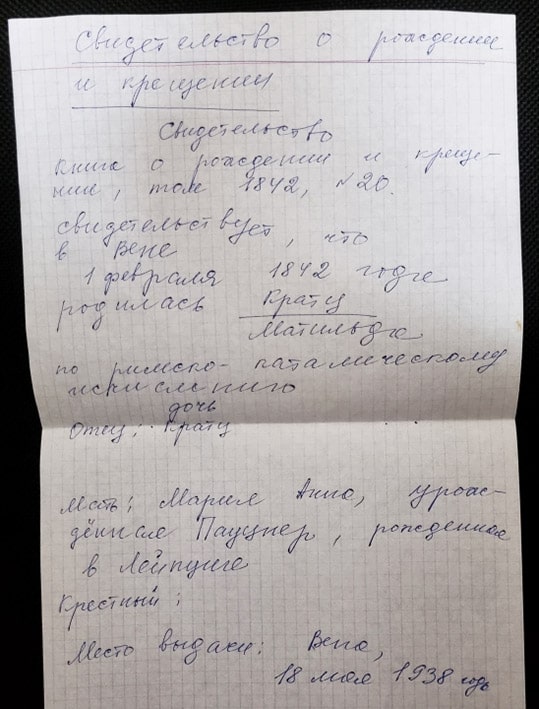 Свидетельство о рождении
и крещении
Свидетельство
Книга о рождении и креще-
нии, том 1842, №20.
свидетельствует, что
в Вене
1 февраля 1842 года
родилась Кратц
Матильда
по римско-каталическому
исчислению
дочь
Отец: Кратц
Мать: Мария Анна, урож-
дённая Пауцнер, рожденная
в Лейпциге
Крестный:
Место выдачи: Вена,
18 мая 1938 год